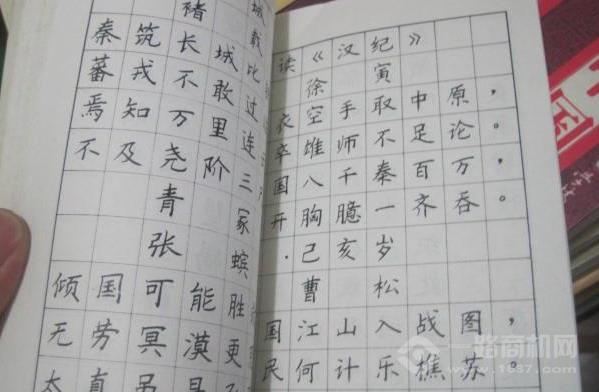 城
褚载
秦筑长城比
蕃戎不敢过
焉知万里连
不及尧阶三
青冢
张蠙
倾国可能胜
无劳冥漠更
太真
读《汉纪》
徐寅
衣空手取中原，
卒雄师不足论。
国八千秦百万，
开胸臆一齐吞。
己亥岁
·曹松
国江山入战图，
民何计乐樵苏。
一路商机网
www.1637.com